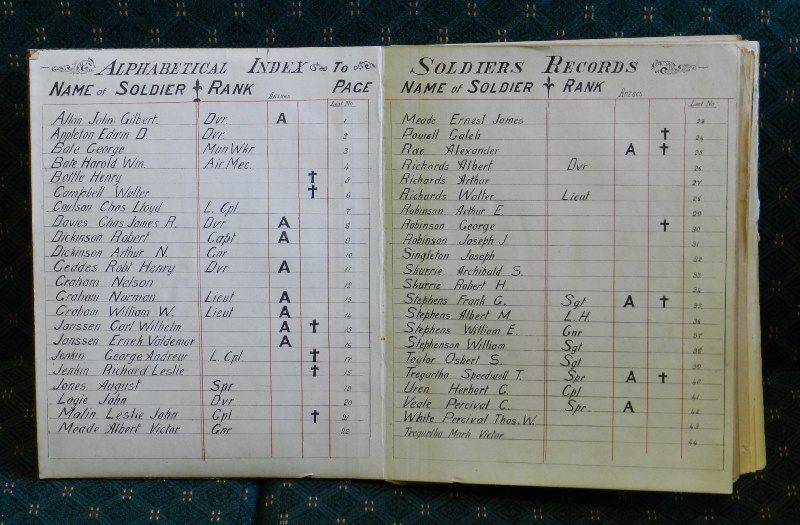 ALPHABETICAL INDEX TO
NAME of SOLDIER RANK PAGE
Anzacs Last No
Allan John Gilbert. Dvr. A 1
Appleton Edwin D. Dvr. 2
Bate George Mun Wkr. 3
Bate Harold Wm. Air Mec. 4
Bottle Henry † 5
Campbell Walter † 6
Coulson Chas Lloyd L. Cpl 7
Davies Chas James R. Dvr. A 8
Dickinson Robert Capt A 9
Dickinson Arthur N. Gnr 10
Geddes Robt Henry Dvr A 11
Graham Nelson 12
Graham Norman Lieut A 13
Graham William W. Lieut A 14
Janssen Carl Wilhelm A † 15
Janssen Ernck Valdemar A 16
Jenkin George Andrew L. Cpl † 17
Jenkin Richard Leslie † 18
Jones August Spr 19
Logie John Dvr 20
Malin Leslie John Cpl † 21
Meade Albert Victor Gnr 22
SOLDIERS RECORDS
NAME of SOLDIER RANK
Anzacs Last No
Meade Ernest James 23
Powell Caleb † 24
Rae Alexander A † 25
Richards Albert Dvr 26
Richards Arthur 27
Richards Walter Lieut 28
Robinson Arthur E. 29
Robinson George † 30
Robinson Joseph J. 31
Singleton Joseph 32
Skurrie Archibald S. 33
Skurrie Robert H. 34
Stephens Frank G. Sgt A † 35
Stephens Albert M. L.H. 36
Stephens William E. Gnr 37
Stephenson William Sgt 38
Taylor Osbert S. Sgt 39
Tregurtha Speedwell T. Spr A † 40
Uren Herbert G. Cpl 41
Veale Percival C. Spr A 42
White Percival Thos. W. 43
Tregurtha Mark Victor 44